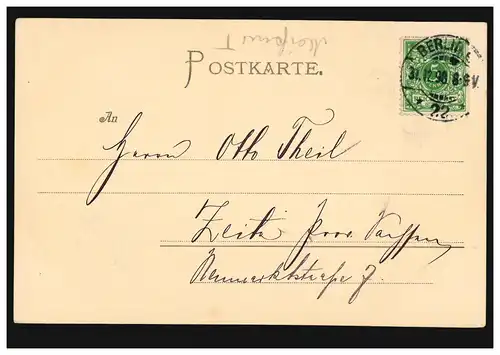 POSTKARTE.
BERLIN
22
An
Herrn Otto Theil
Zeitz Prov. Sachsen
Neumarktstraße 7.